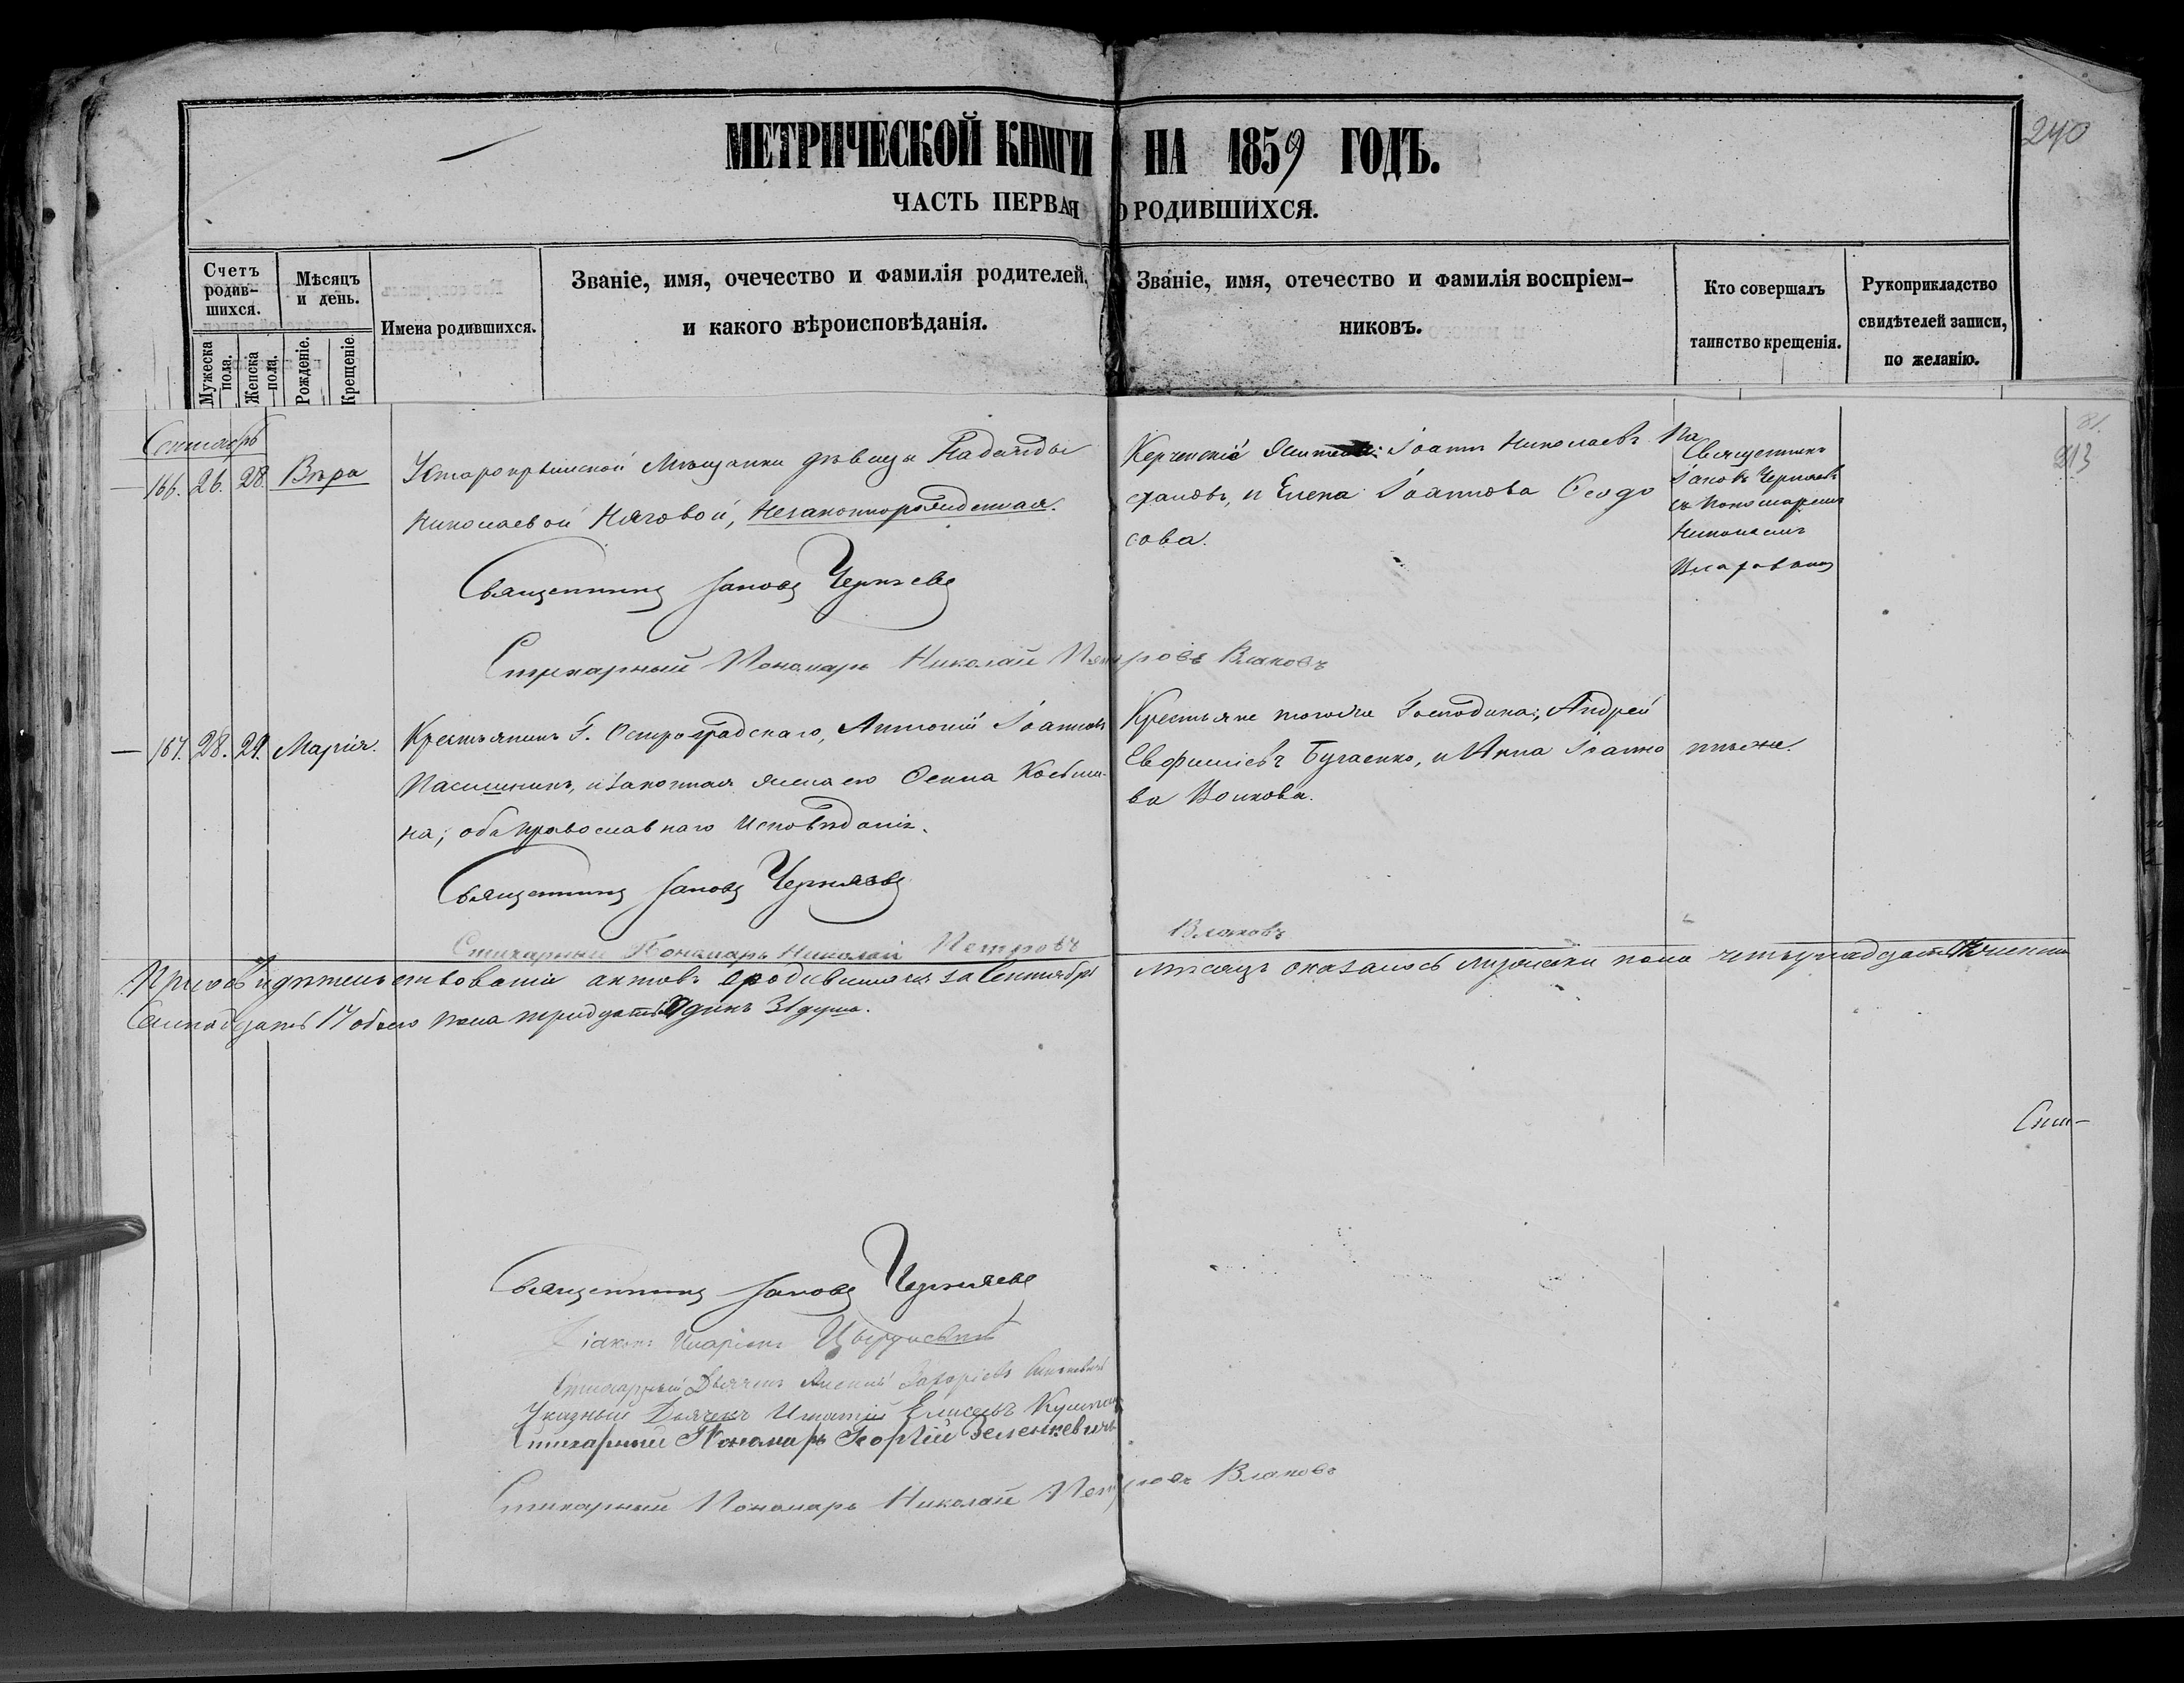 240
МЕТРИЧЕСКОЙ КНИГИ НА 1859 ГОДЪ.
ЧАСТЬ ПЕРВАЯ О РОДИВШИХСЯ.
Счетъ родив-
шихся.
Мужеска пола.
Женска пола.
Мѣсяцъ и день.
Рожденіе.
Крещеніе.
Имена родившихся.
Званіе, имя, очечество и фамилія родителей,
и какого вѣроисповѣданія.
Званіе, имя, отечество и фамилія воспріем-
никовъ.
Кто совершалъ
таинство крещенія.
Рукоприкладство
свидѣтелей записи,
по желанію.
81.
213
Сентябрь
166. 26. 28. Вѣра
Старокрымской Мѣщанки дѣвицы Надежды
Николаевой Няговой, Незаконнорожденная.
Керченскіе Жители: Іоаннъ Николаевъ Ка
становъ, и Елена Іоаннова Ѳеодо
сова.
Священникъ
Іаковъ Черняевъ
съ Пономаремъ
Николаемъ
Священникъ Іаковъ Черняевъ
Стихарный Пономарь Николай Петровъ Влаховъ
167. 28. 29. Марія.
Крестьянинъ Г. Остроградскаго, Антоній Іоанновъ
и законная жена его Косьми-
на; оба православнаго Исповѣданія.
Крестьяне тогоже Господина; Андрей
Евфиміевъ Бугаенко, и Анна Іоанно
ва Волкова.
тѣже.
Священникъ Іаковъ Черняевъ
Стихарный Пономарь Николай Петровъ Влаховъ
При освидѣтельствованіи актовъ о родившихся за Сентябрь мѣсяцъ оказалось мужеска пола четырнадцать женска
Семнадцать 17 обоего пола тридцать одинъ 31 душа.
Священникъ Іаковъ Черняевъ
Діаконъ Иларіонъ
Стихарный Дьячекъ Алексій Захаріевъ
Указный Дьячекъ Игнатій Елисеевъ
Стихарный Пономарь Георгій Зеленкевичъ
Стихарный Пономарь Николай Петровъ Влаховъ